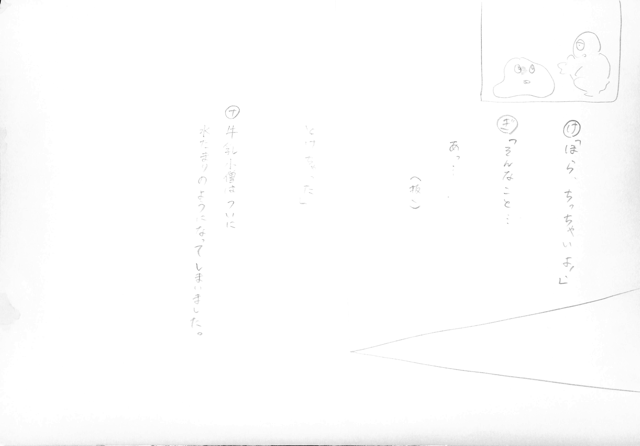 け「ほら、ちっちゃいよ!」
ぎ「そんなこと…
あっ…
とけちゃった」
ナ 牛乳小僧はついに
水たまりのようになってしまいました。